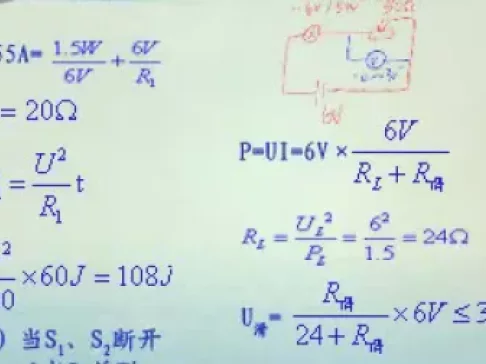 55A= 1.5W/6V + 6V/R₁
=20Ω
= U²/R₁ t
×60J=108J
) 当S₁、S₂断开
6V
P=UI=6V× 6V/(R_L+R_滑)
R_L = U_L²/P_L = 6²/1.5 = 24Ω
U_滑= R_滑/(24+R_滑) ×6V≤3